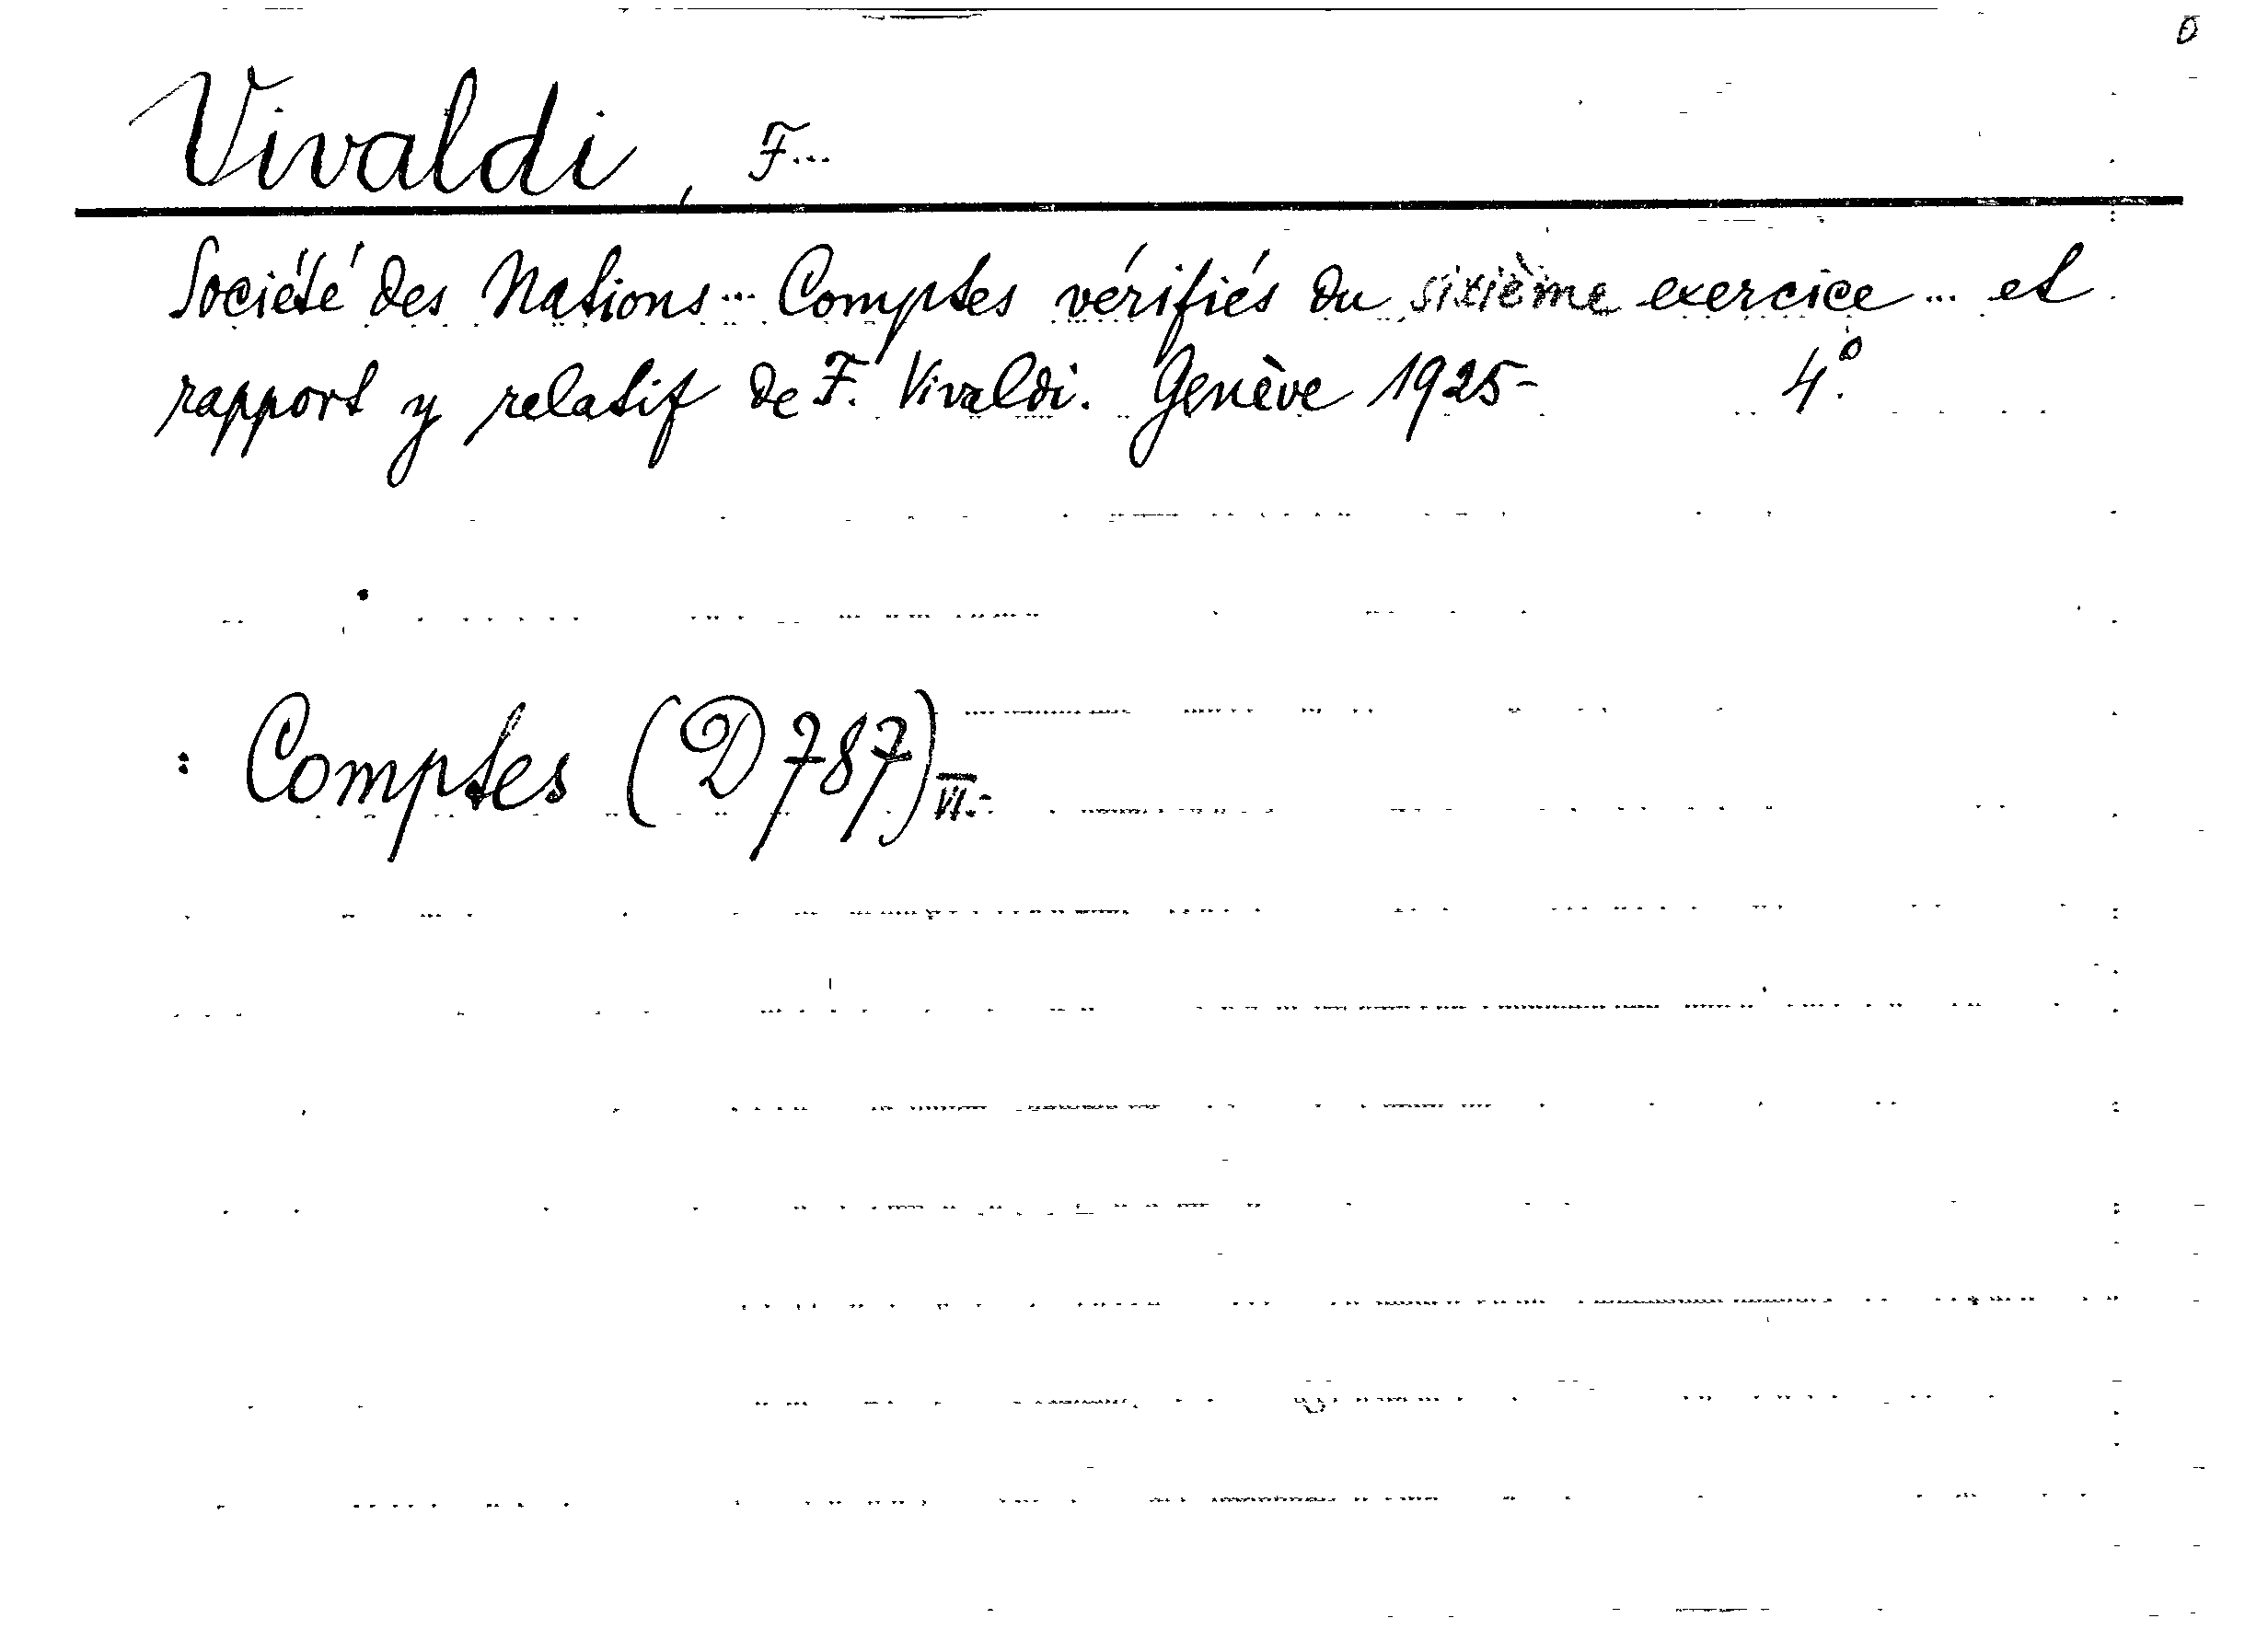 Vivaldi, F...
Société des Nations... Comptes vérifiés du sixième exercice... et
rapport y relatif de F. Vivaldi. Genève 1925- 4°.
: Comptes (D787) VI.-